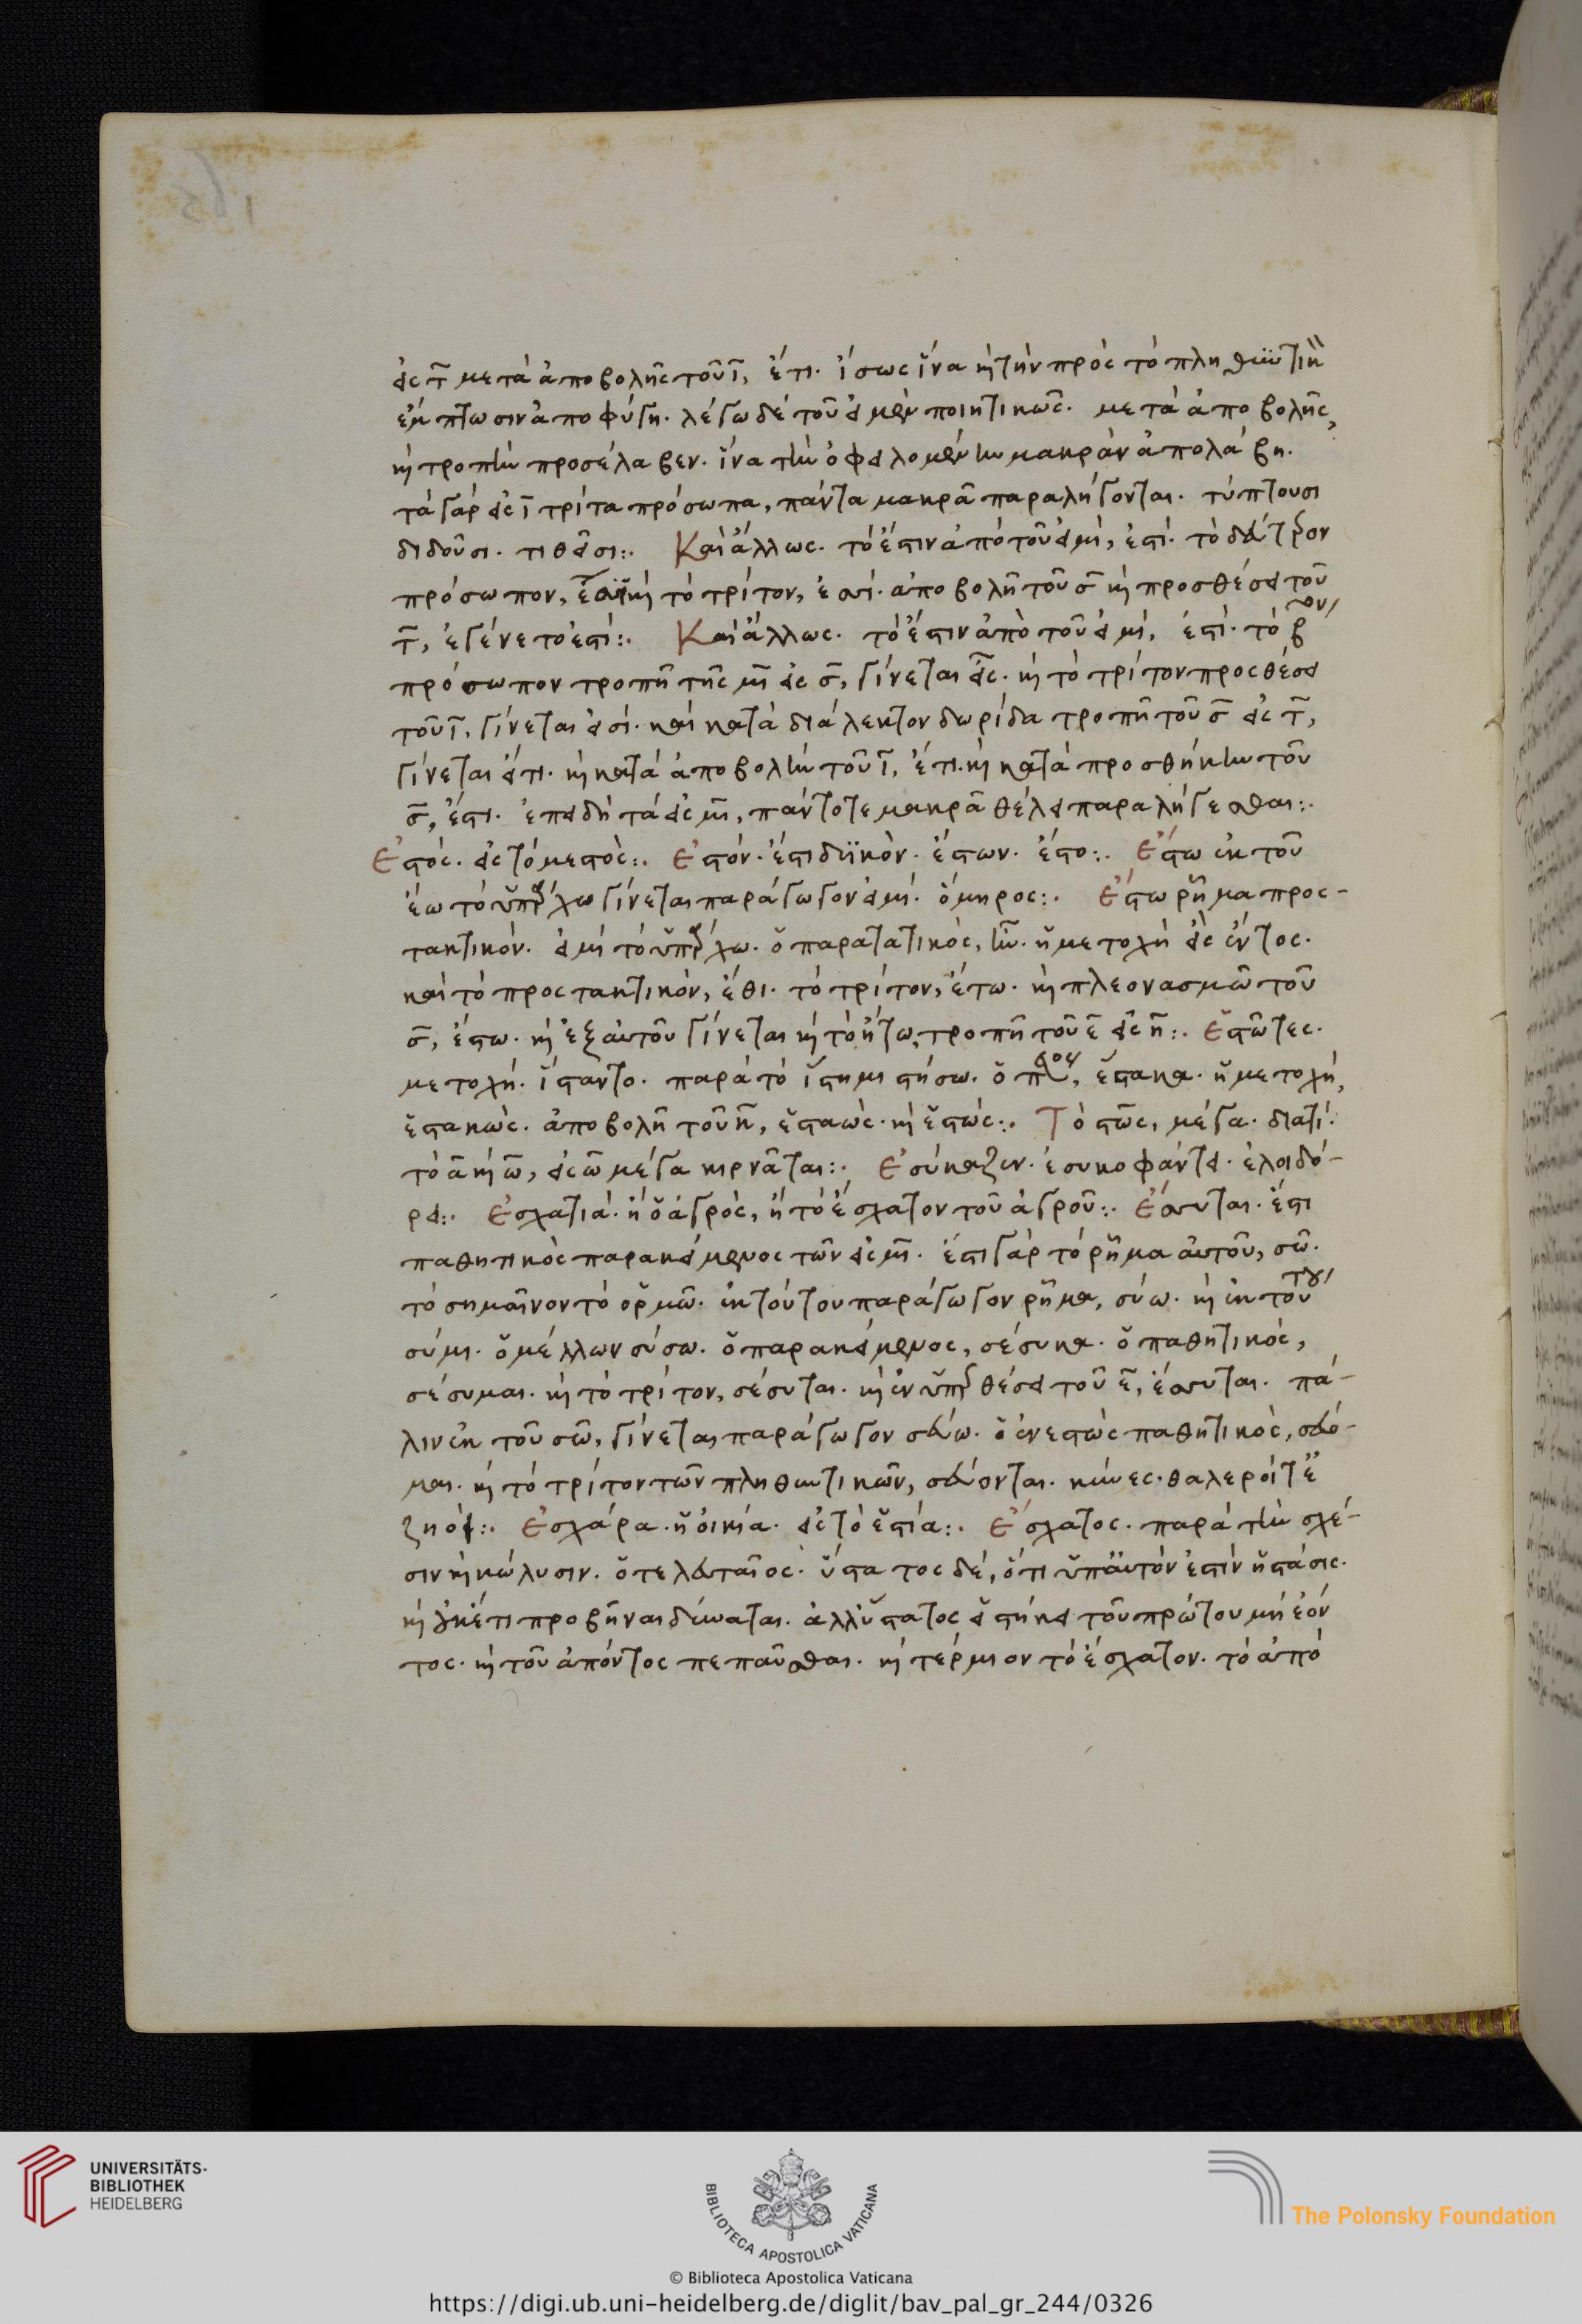 εἰς τ̄ μετὰ ἀποβολῆς τοῦ ῑ, ἔτι. ἴσως ἵνα κ̀ τὴν πρὸς τὸ πληθυντικὸν
ἔμπτωσιν ἀποφύγη. λέγω δὲ τοῦ εἰμὲν ποιητικῶς. μετὰ ἀποβολῆς,
κ̀ τροπὴν προσέλαβεν. ἵνα τὴν ὀφειλομένην μακρὰν ἀπολάβη.
τὰ γὰρ εἰς ῑ τρίτα πρόσωπα, πάντα μακρᾶ παραλήγονται. τύπτουσι
διδοῦσι. τιθεῖσι:. Καὶ ἄλλως. τὸ ἔστιν ἀπὸ τοῦ εἰμὶ, ἐστί. τὸ δεύτερον
πρόσωπον, κ̀ τὸ τρίτον, ἐσσί. ἀποβολῆ τοῦ σ̄ κ̀ προσθέσει τοῦ
τ̄, ἐγένετο ἐστί:. Καὶ ἄλλως. τὸ ἔστιν ἀπὸ τοῦ εἰμὶ, ἐστί. τὸ βον
πρόσωπον τροπῆ τῆς μ̄ι εἰς σ̄, γίνεται εἶς. κ̀ τὸ τρίτον προςθέσει
τοῦ ῑ, γίνεται εἰσί. καὶ κατὰ διάλεκτον δωρίδα τροπῆ τοῦ σ̄ εἰς τ̄,
γίνεται εἰτι. κ̀ κατὰ ἀποβολὴν τοῦ ῑ, ἔτι. κ̀ κατὰ προσθήκην τοῦ
σ̄, ἔστι. ἐπειδὴ τὰ εἰς μ̄ι, πάντοτε μακρᾶ θέλει παραλήγεσθαι:.
Ἐστός. εἰς τὸ μεστός:. Ἐστόν. ἔστι δυϊκὸν. ἔστων. ἔστο:. Ἔστω ἐκ τοῦ
ἔω τὸ ὑπάρχω γίνεται παράγωγον εἰμί. ὅμηρος:. Ἔστω ῥῆμα προς-
τακτικόν. εἰμὶ τὸ ὑπάρχω. ὁ παρατατικὸς, ἦν. ἡ μετοχὴ εἲς ἔντος.
καὶ τὸ προςτακτικὸν, ἔθι. τὸ τρίτον, ἔτω. κ̀ πλεονασμῶ τοῦ
σ̄, ἔστω. κ̀ ἐξ αὐτοῦ γίνεται κ̀ τὸ ἤτω, τροπῆ τοῦ ε̄ εἰς η̄:. Ἑστῶτες.
μετοχή. ἵσταντο. παρὰ τὸ ἵστημι στήσω. ὁ παρακείμενος, ἕστακα. ἡ μετοχή,
ἑστακὼς. ἀποβολῆ τοῦ κ̄, ἑσταὼς. κ̀ ἑστώς:. Τὸ στῶς, μέγα. διατί.
τὸ ᾱ κ̀ ω̄, εἰς ω̄ μέγα κιρνᾶται:. Ἐσύκαζεν. ἐσυκοφάντει. ἐλοιδό-
ρει:. Ἐσχατιά. ἢ ὁ ἀγρὸς, ἢ τὸ ἔσχατον τοῦ ἀγροῦ:. Ἔσσυται. ἔστι
παθητικὸς παρακείμενος τῶν εἰς μ̄ι. ἔστι γὰρ τὸ ῥῆμα αὐτοῦ, σῶ.
τὸ σημαῖνον τὸ ὁρμῶ. ἐκ τούτου παράγωγον ῥῆμα, σύω. κ̀ ἐκ τούτου
σύμι. ὁ μέλλων σύσω. ὁ παρακείμενος, σέσυκα. ὁ παθητικὸς,
σέσυμαι. κ̀ τὸ τρίτον, σέσυται. κ̀ ἐν ὑπερθέσει τοῦ ε̄, ἔσσυται. πά-
λιν ἐκ τοῦ σῶ, γίνεται παράγωγον σεύω. ὁ ἐνεστὼς παθητικὸς, σεύο-
μαι. κ̀ τὸ τρίτον τῶν πληθυντικῶν, σεύονται. κύνες. θαλεροί τ'
Ἐσχάρα. ἡ οἰκία. εἰς τὸ ἑστία:. Ἔσχατος. παρὰ τὴν σχέ-
σιν κ̀ κώλυσιν. ὁ τελευταῖος. ὕστατος δὲ, ὅτι ὑπ' αὐτόν ἐστιν ἡ στάσις.
κ̀ οὐκέτι προβῆναι δύναται. ἀλλ' ὕστατος εἱστήκει τοῦ πρώτου μὴ ἐόν
τος. κ̀ τοῦ ἀπόντος πεπαῦσθαι. κ̀ τέρμιον τὸ ἔσχατον. τὸ ἀπὸ
UNIVERSITÄTS-
BIBLIOTHEK
HEIDELBERG
BIBLIOTECA APOSTOLICA VATICANA
The Polonsky Foundation
© Biblioteca Apostolica Vaticana
https://digi.ub.uni-heidelberg.de/diglit/bav_pal_gr_244/0326